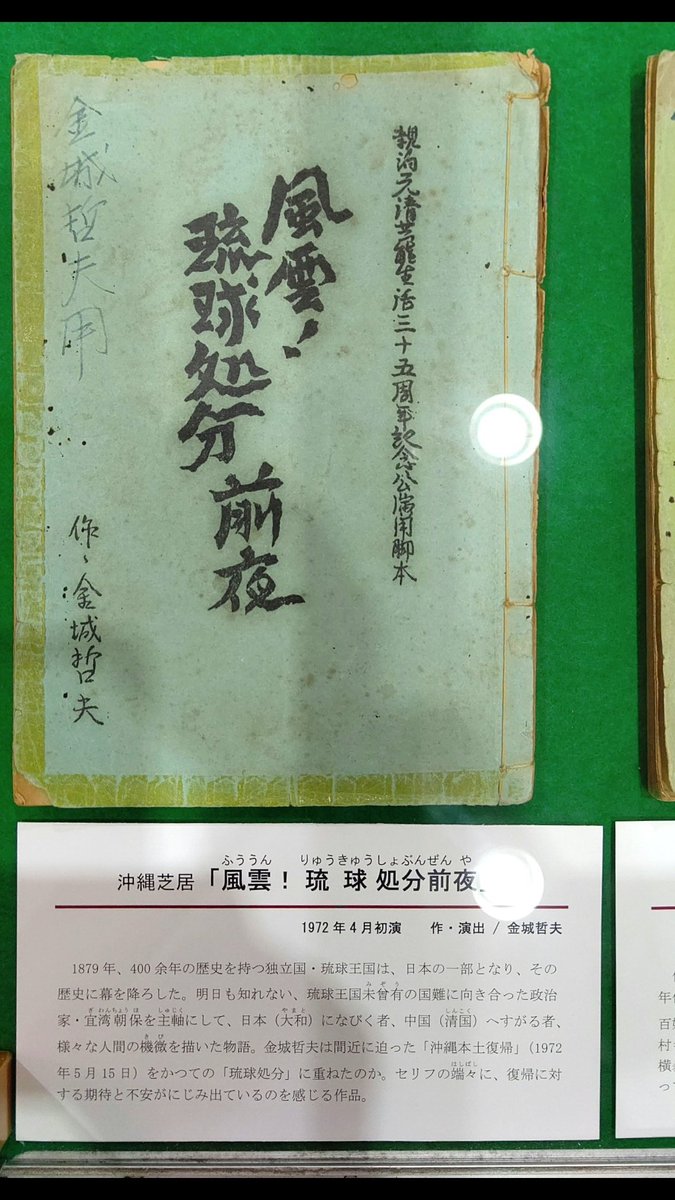 親泊元清芸能生活三十五周年記念公演用脚本
風雲!
琉球処分
前夜
金城哲夫用
作、金城哲夫
沖縄芝居「風雲!琉球処分前夜」
ふううん りゅうきゅうしょぶんぜんや
1972年4月初演 作・演出 / 金城哲夫
1879年、400余年の歴史を持つ独立国・琉球王国は、日本の一部となり、その
歴史に幕を降ろした。明日も知れない、琉球王国未曾有の国難に向き合った政治
みぞう
家・宜湾朝保を主軸にして、日本(大和)になびく者、中国(清国)へすがる者、
ぎわんちょうほ しゅじく やまと しんこく
様々な人間の機微を描いた物語。金城哲夫は間近に迫った「沖縄本土復帰」(1972
きび
年5月15日)をかつての「琉球処分」に重ねたのか。セリフの端々に、復帰に対
はしばし
する期待と不安がにじみ出ているのを感じる作品。
年
百
村
横
って